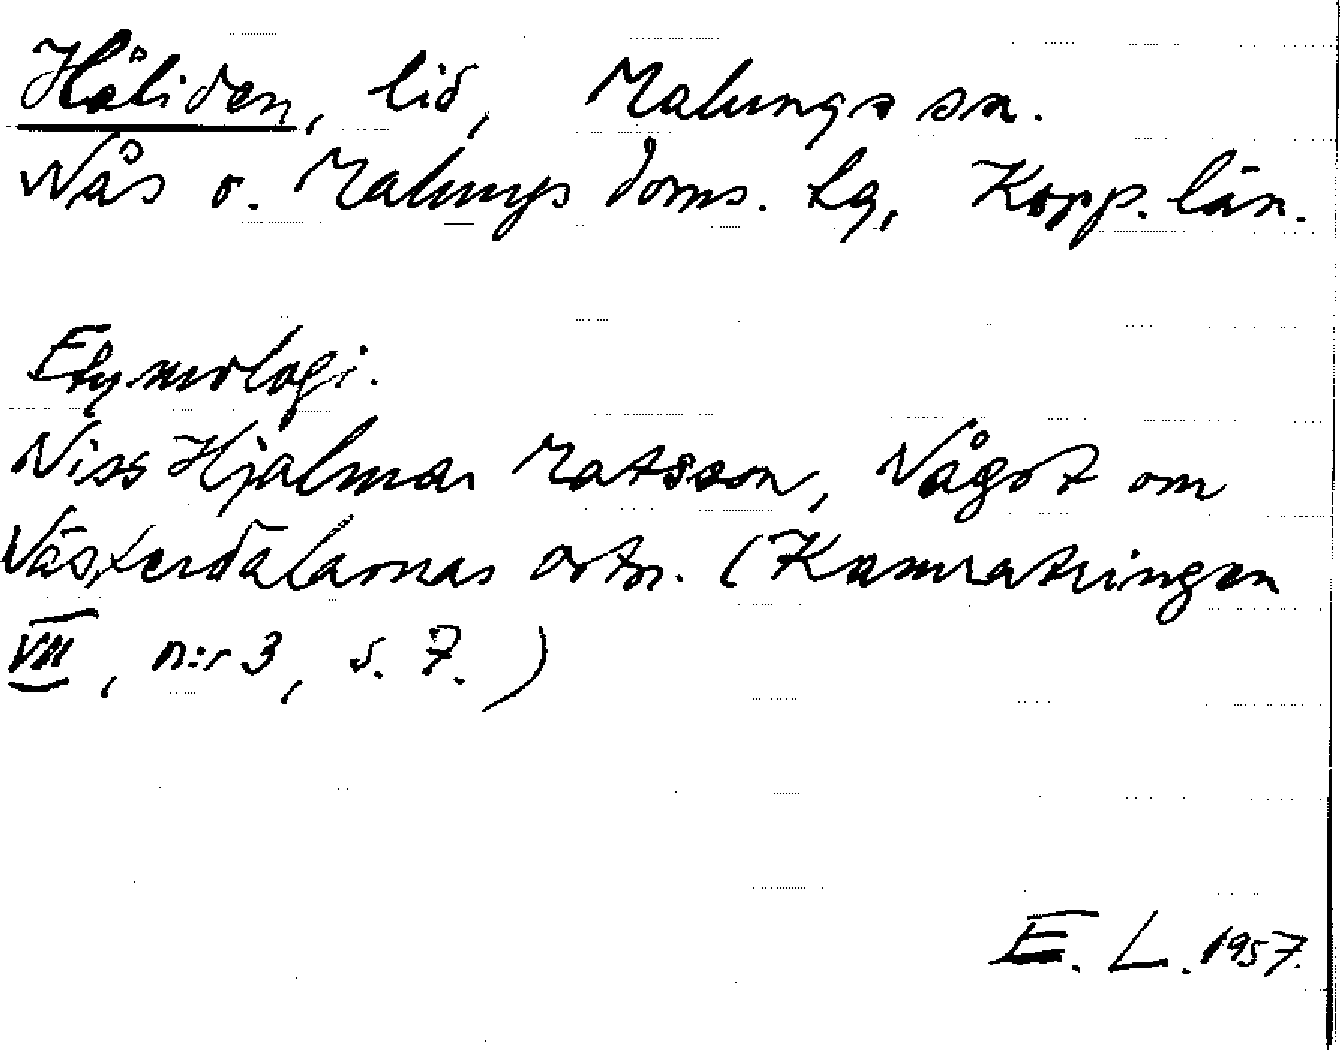 Håliden, lid, Malungs sn.
Nås o. Malungs doms. tg, Kopp. län.
Etymologi.
Niss Hjalmar Matsson, Något om
Västerdalarnas ortn. (Kamratringen
VII, n:r 3, s. 7.)
E. L. 1957.